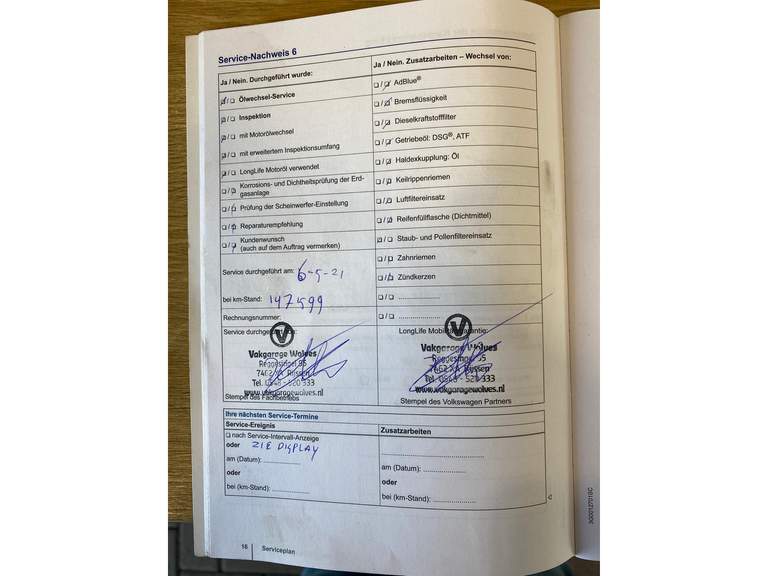 Service-Nachweis 6
Ja / Nein. Durchgeführt wurde:
☑/☐ Ölwechsel-Service
☑/☐ Inspektion
☑/☐ mit Motorölwechsel
☑/☐ mit erweitertem Inspektionsumfang
☑/☐ LongLife Motoröl verwendet
☐/☑ Korrosions- und Dichtheitsprüfung der Erd-
gasanlage
☐/☑ Prüfung der Scheinwerfer-Einstellung
☐/☑ Reparaturempfehlung
☐/☑ Kundenwunsch
(auch auf dem Auftrag vermerken)
Service durchgeführt am: 6-5-21
bei km-Stand: 147599
Rechnungsnummer:
Service durchgeführt
Vakgarage Wolves
Reggesingel 55
Rijssen
Tel. 0548 - 520 333
www.vakgaragewolves.nl
Stempel des Fachbetriebs
Ja / Nein. Zusatzarbeiten – Wechsel von:
☐/☑ AdBlue®
☐/☑ Bremsflüssigkeit
☐/☑ Dieselkraftstofffilter
☐/☑ Getriebeöl: DSG®, ATF
☐/☑ Haldexkupplung: Öl
☐/☑ Keilrippenriemen
☐/☑ Luftfiltereinsatz
☐/☑ Reifenfüllflasche (Dichtmittel)
☑/☐ Staub- und Pollenfiltereinsatz
☐/☑ Zahnriemen
☐/☑ Zündkerzen
☐/☐ ....................
☐/☐ ....................
LongLife Mobilitätsgarantie:
Vakgarage Wolves
Reggesingel 55
Rijssen
Tel. 0548 - 520 333
www.vakgaragewolves.nl
Stempel des Volkswagen Partners
Ihre nächsten Service-Termine
Service-Ereignis
☐ nach Service-Intervall-Anzeige
oder ZIE DISPLAY
am (Datum): ..............
oder
bei (km-Stand): ..............
Zusatzarbeiten
..............................
am (Datum): ..............
oder
bei (km-Stand): ..............
16 Serviceplan
3G0012701SC